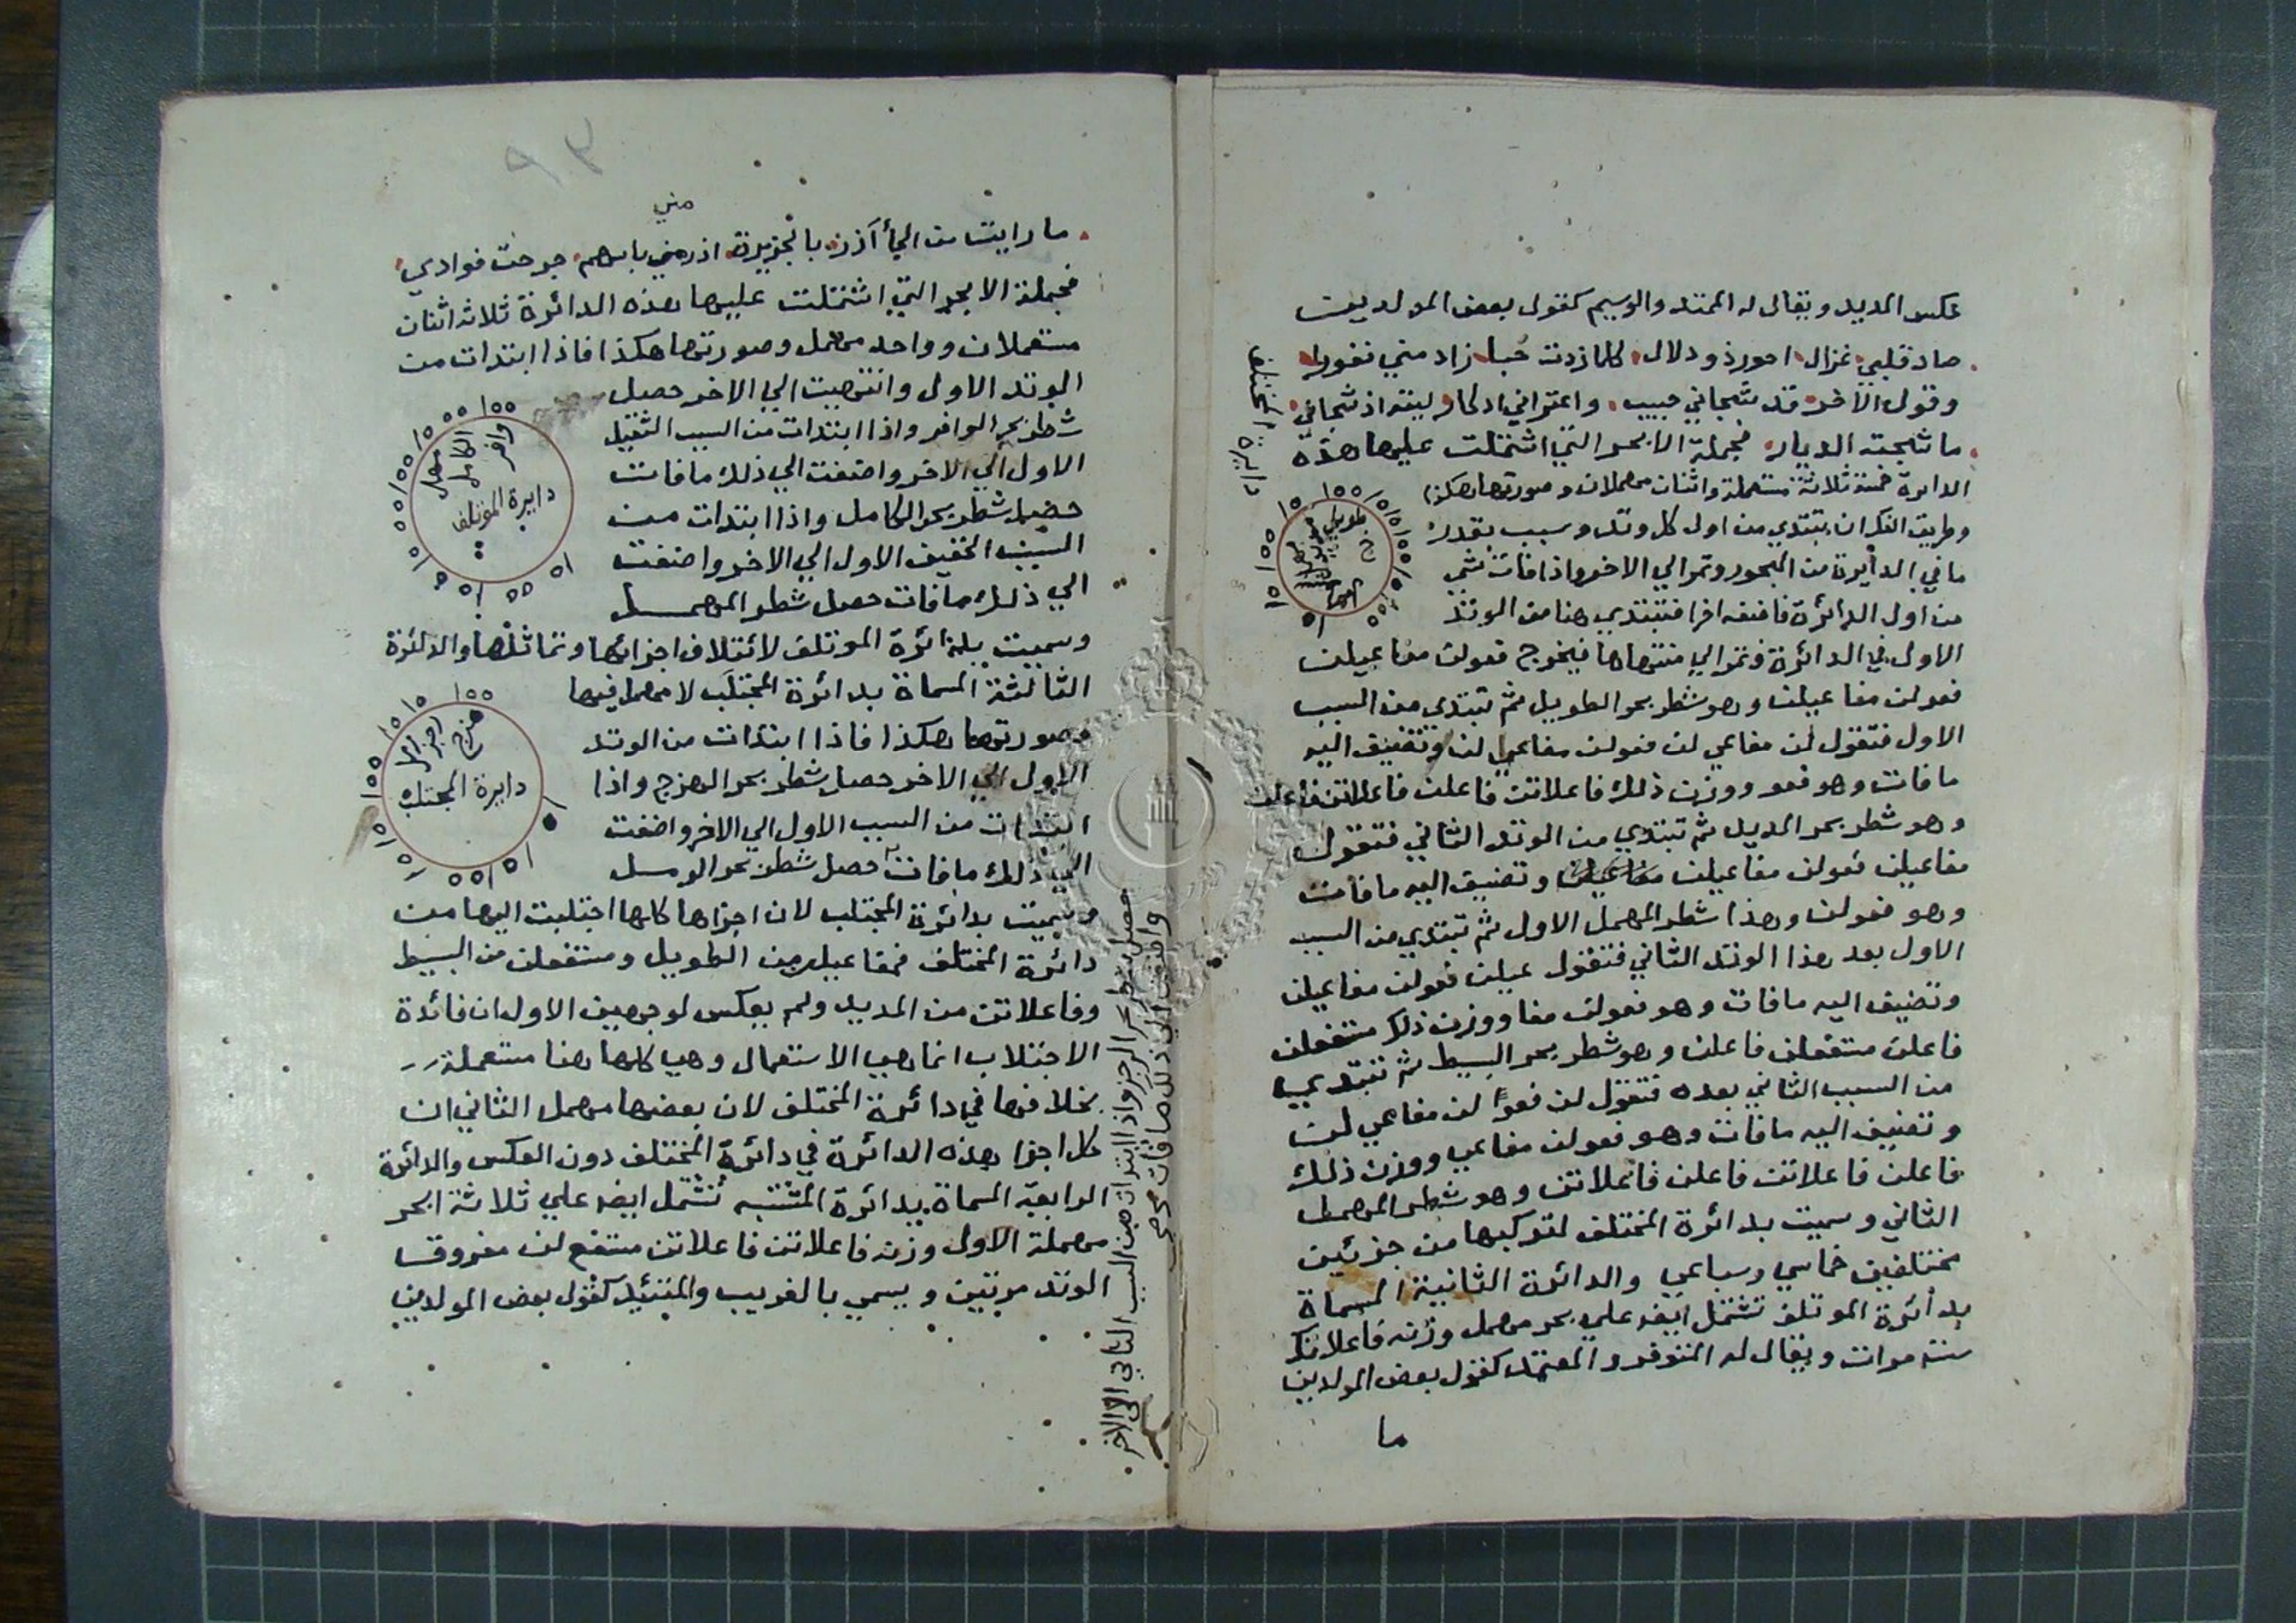 عكس المديد ويقال له الممتد والوسيم كقول بعض المولدين
صاد قلبي غزال احور ذو دلال كلما زدت حبا زاد مني نفورا
وقول الاخر قد شجاني حبيب واعتراني ادكار ليته اذ شجاني
ما شجته الديار فجملة الابحر التي اشتملت عليها هذه
الدايرة خمسة ثلاثة مستعملة واثنان مهملان وصورتها هكذا
وطريق الفك ان تبتدي من اول كل وتد وسبب بقدر
ما في الدايرة من البحور وتمر الي الاخر واذا فات شي
من اول الدائرة فاضفه اخرا فتبتدي هنا من الوتد
الاول في الدائرة وتمر الي منتهاها فيخرج فعولن مفاعيلن
فعولن مفاعيلن وهو شطر بحر الطويل ثم تبتدي من السبب
الاول فتقول لن مفاعي لن فعولن مفاعي لن وتضيف اليه
ما فات وهو فعو ووزن ذلك فاعلاتن فاعلن فاعلاتن فاعلن
وهو شطر بحر المديد ثم تبتدي من الوتد الثاني فتقول
مفاعيلن فعولن مفاعيلن وتضيف اليه ما فات
وهو فعولن وهذا شطر المهمل الاول ثم تبتدي من السبب
الاول بعد هذا الوتد الثاني فتقول عيلن فعولن مفاعيلن
وتضيف اليه ما فات وهو فعولن مفا ووزن ذلك مستفعلن
فاعلن مستفعلن فاعلن وهو شطر بحر البسيط ثم تبتدي
من السبب الثاني بعده فتقول لن فعو لن مفاعي لن
وتضيف اليه ما فات وهو فعولن مفاعي ووزن ذلك
فاعلن فاعلاتن فاعلن فاعلاتن وهو شطر المهمل
الثاني وسميت بدائرة المختلف لتركبها من جزئين
مختلفين خماسي وسباعي والدائرة الثانية المسماة
بدائرة الموتلف تشتمل ايضا علي بحر مهمل وزنه فاعلاتك
ستة مرات ويقال له المتوفر والمعتمد كقول بعض المولدين
ما
دايرة المختلف
طويل
٩٣
مني
ما رايت من الجآذر بالجزيرة اذ رمين باسهم جرحت فوادي
فجملة الابحر التي اشتملت عليها هذه الدائرة ثلاثه اثنان
مستعملان وواحد مهمل وصورتها هكذا فاذا ابتدات من
الوتد الاول وانتهيت الي الاخر حصل
شطر بحر الوافر واذا ابتدات من السبب الثقيل
الاول الي الاخر واضفت الي ذلك ما فات
حصل شطر بحر الكامل واذا ابتدات من
السبب الخفيف الاول الي الاخر واضفت
الي ذلك ما فات حصل شطر المهمل
وافر
الكامل
مهمل
دايرة الموتلف
وسميت بدائرة الموتلف لائتلاف اجزائها وتماثلها والدائرة
الثالثة المسماة بدائرة المجتلب لا مهمل فيها
وصورتها هكذا فاذا ابتدات من الوتد
الاول الي الاخر حصل شطر بحر الهزج واذا
ابتدات من السبب الاول الي الاخر واضفت
الي ذلك ما فات حصل شطر بحر الرمل
هزج
رجز
دايرة المجتلب
وسميت بدائرة المجتلب لان اجزاها كلها اجتلبت اليها من
دائرة المختلف فمفاعيلن من الطويل ومستفعلن من البسيط
وفاعلاتن من المديد ولم يعكس لوجهين الاول ان فائدة
الاجتلاب انما هي الاستعمال وهي كلها هنا مستعملة
بخلافها في دائرة المختلف لان بعضها مهمل الثاني ان
كل اجزا هذه الدائرة في دائرة المختلف دون العكس والدائرة
الرابعة المسماة بدائرة المشتبه تشتمل ايضا علي ثلاثة ابحر
مهملة الاول وزنه فاعلاتن فاعلاتن مستفع لن مفروق
الوتد مرتين ويسمي بالغريب والمتئيد كقول بعض المولدين
حصل شطر بحر الرجز واذا ابتدات من السبب الثاني الي الاخر
واضفت الي ذلك ما فات